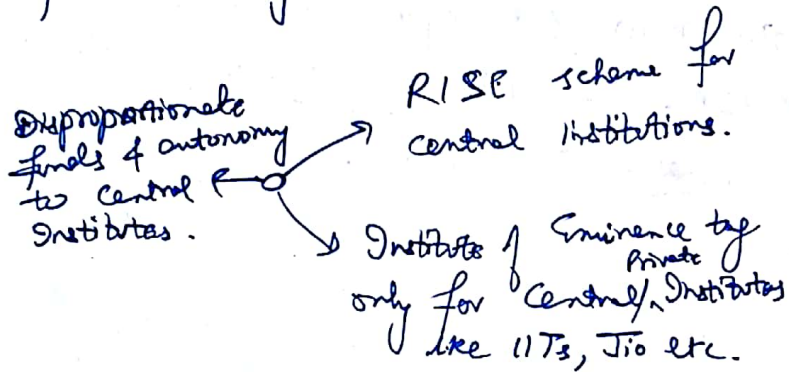 Disproportionate
funds & autonomy
to central
Institutes.
RISE scheme for
central institutions.
Institute of Eminence tag
only for Central/Private Institutes
like IITs, Jio etc.